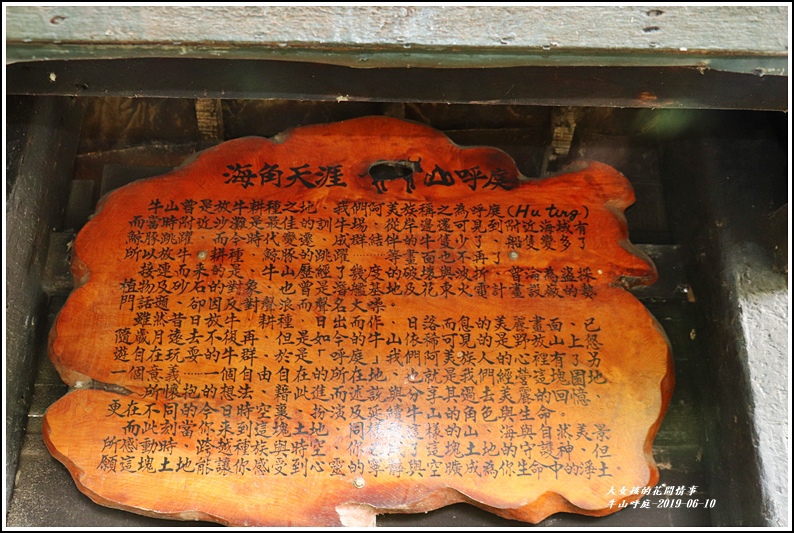 海角天涯 山呼庭
牛山曾是放牛耕種之地，我們阿美族稱之為呼庭(Hu ting)
而當時附近沙灘是最佳的訓牛場、從岸邊還可見到附近海域有
鯨豚跳躍、而今時代變遷、成群結伴的牛隻少了、船隻變多了
所以放牛、耕種、鯨豚的跳躍……等畫面也不再了
接運而來的是、牛山歷經了幾度的破壞與波折、曾淪為盜採
植物及砂石的對象、也曾是濱海纜基地及花東火電計畫設廠的熱
門話題、卻因反對聲浪而聲名大噪。
雖然昔日放牛、耕種、日出而作、日落而息的美麗畫面、已
隨歲月遠去不復再、但是如今的牛山依稀可見的是野放山上悠
遊自在玩耍的牛群、於是「呼庭」我們阿美族人的心裡有了另
一個意義……一個自由自在的所在地、也就是我們經營這塊園地
所懷抱的想法、藉此進而述說與分享其過去美麗的回憶、
更在不同的今日時空裏、扮演及延續牛山的角色與生命。
而此刻當你來到這塊土地、同樣 這樣的山、海與自然美景
所感動時、跨越種族與時空、你 了這塊土地的守護神、但
願這塊土地能讓你感受到心靈的寧靜與空曠成為你生命中的淨土.
大女孩的花開情事
牛山呼庭-2019-06-10